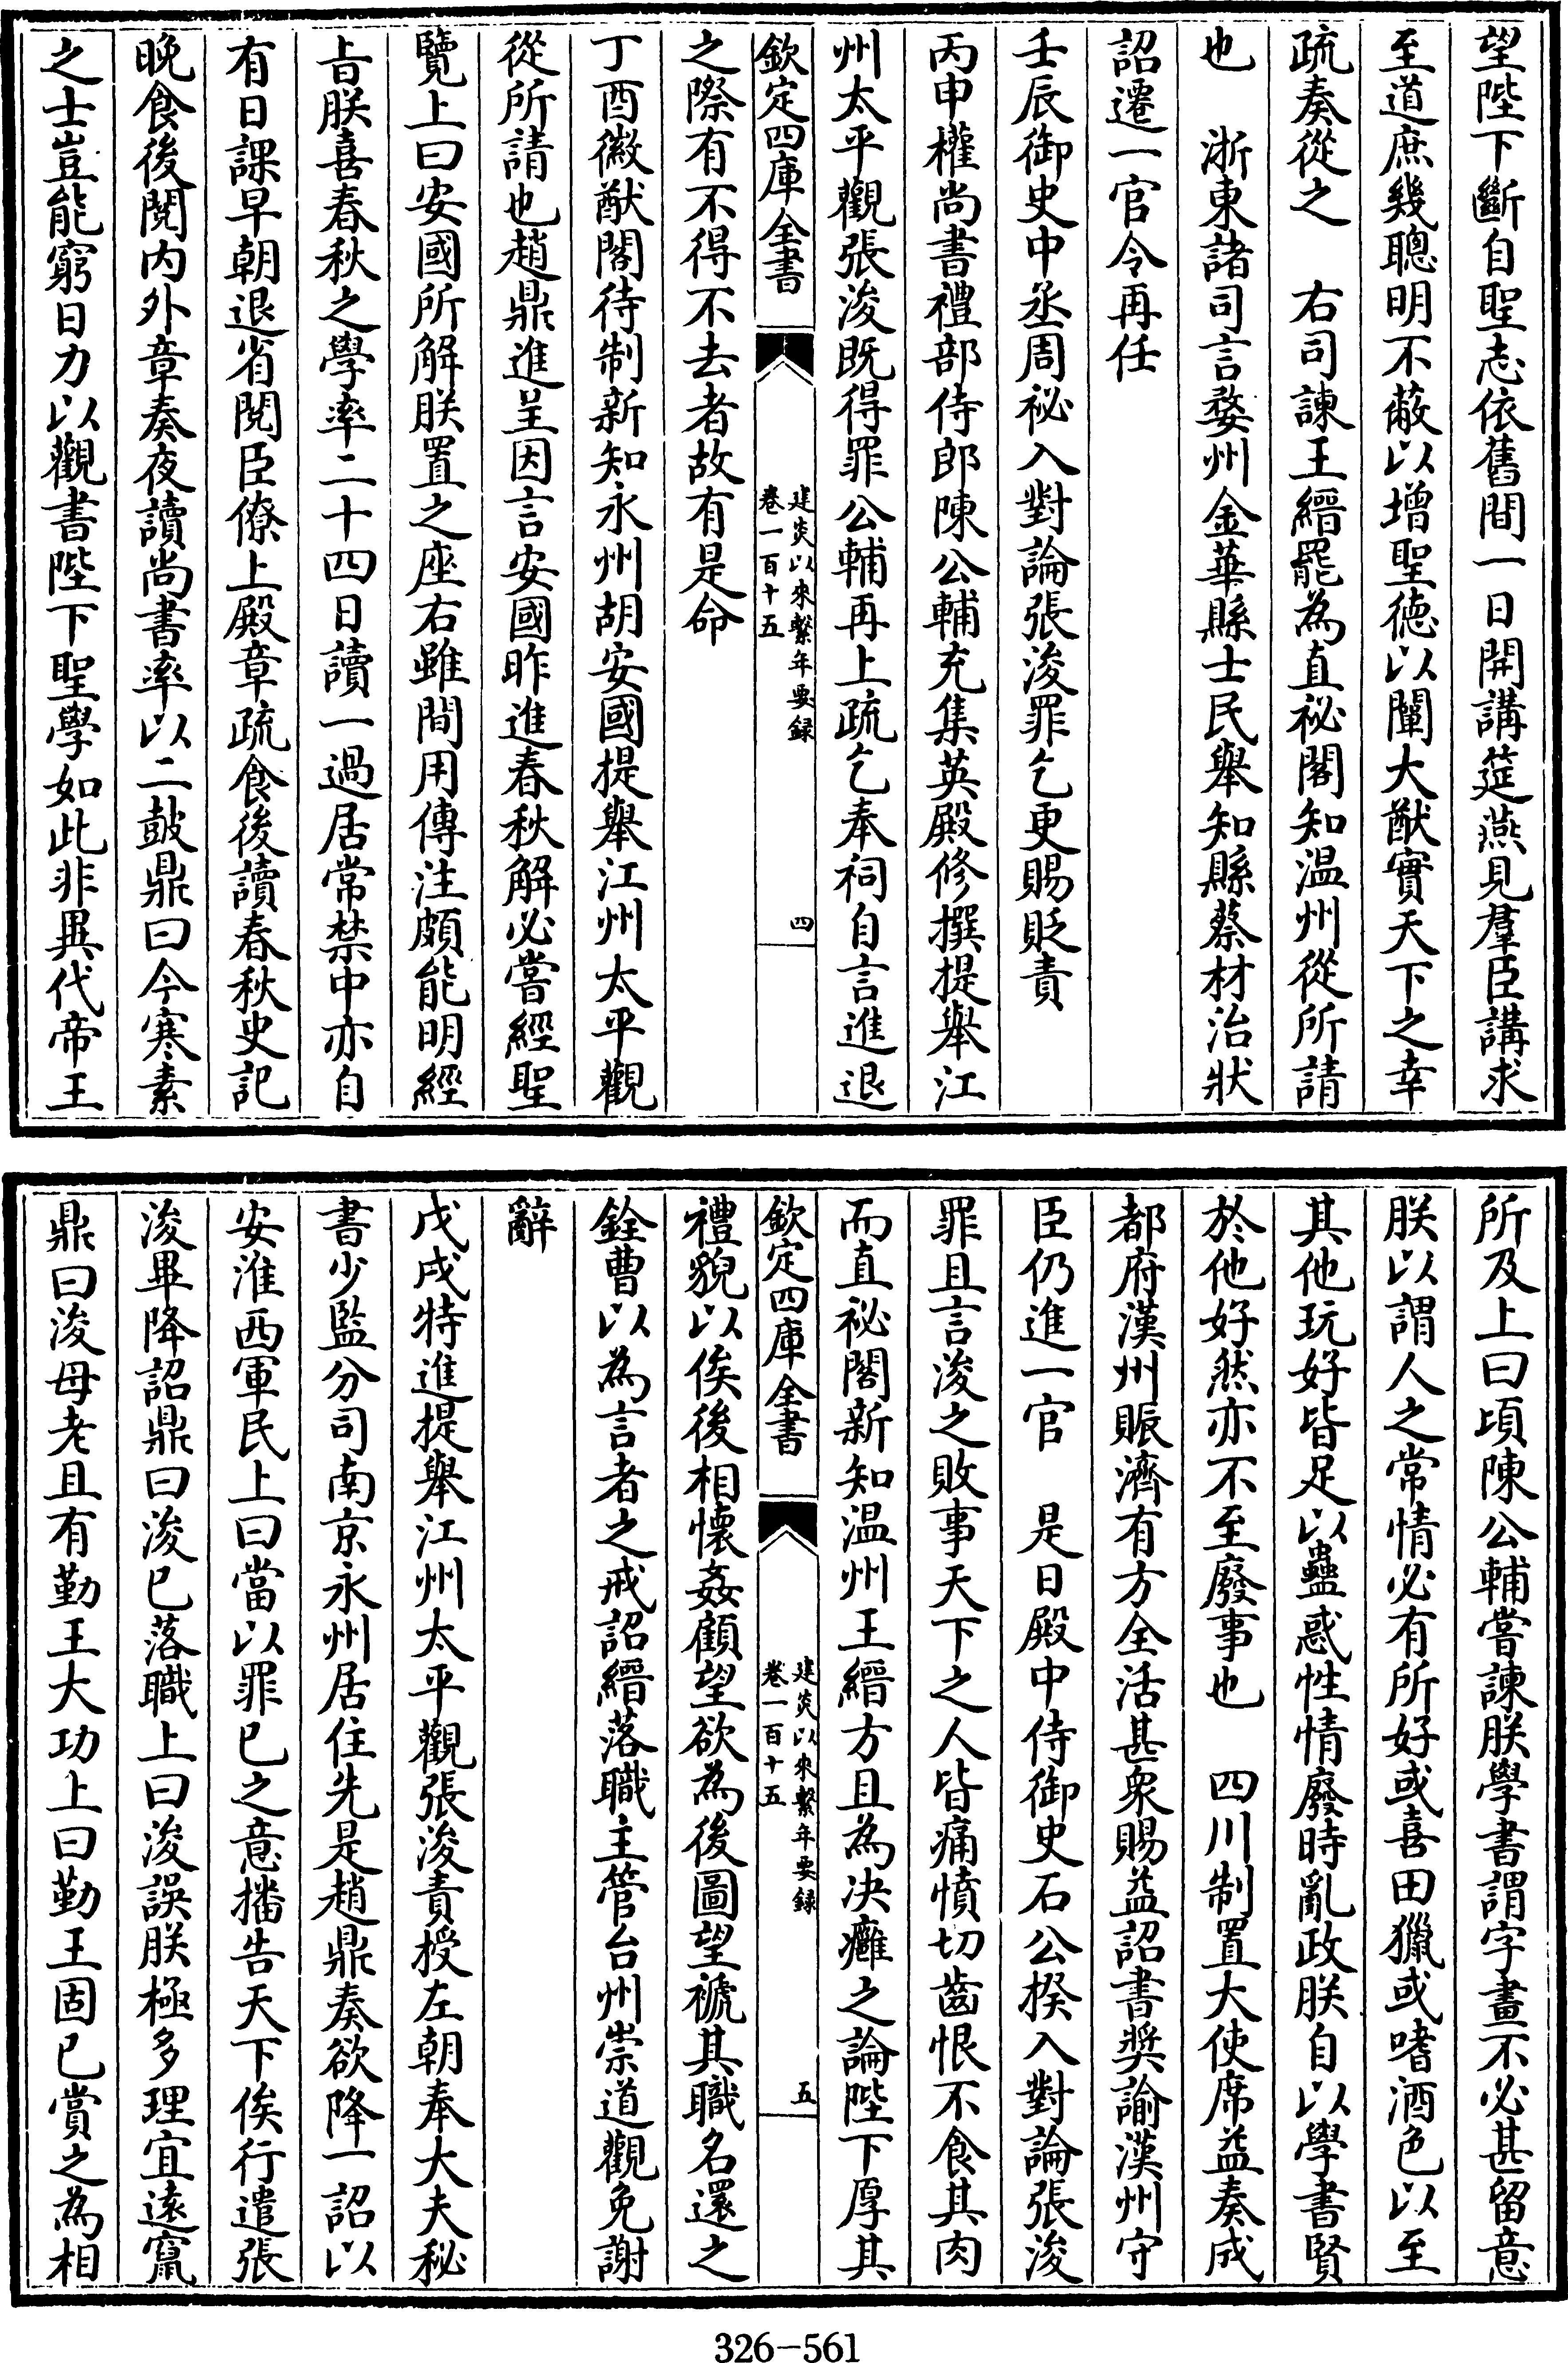 望陛下斷自聖志依舊間一日開講筵燕見羣臣講求
至道庶幾聰明不蔽以增聖德以闡大猷實天下之幸
疏奏從之　右司諫王縉罷為直祕閣知温州從所請
也　浙東諸司言婺州金華縣士民舉知縣蔡材治狀
詔遷一官令再任
壬辰御史中丞周祕入對論張浚罪乞更賜貶責
丙申權尚書禮部侍郎陳公輔充集英殿修撰提舉江
州太平觀張浚既得罪公輔再上疏乞奉祠自言進退
欽定四庫全書
建炎以來繫年要録
卷一百十五
四
之際有不得不去者故有是命
丁酉徽猷閣待制新知永州胡安國提舉江州太平觀
從所請也趙鼎進呈因言安國昨進春秋解必嘗經聖
覽上曰安國所解朕置之座右雖間用傳注頗能明經
旨朕喜春秋之學率二十四日讀一過居常禁中亦自
有日課早朝退省閱臣僚上殿章疏食後讀春秋史記
晚食後閱内外章奏夜讀尚書率以二鼓鼎曰今寒素
之士豈能窮日力以觀書陛下聖學如此非異代帝王
所及上曰頃陳公輔嘗諫朕學書謂字畫不必甚留意
朕以謂人之常情必有所好或喜田獵或嗜酒色以至
其他玩好皆足以蠱惑性情廢時亂政朕自以學書賢
於他好然亦不至廢事也　四川制置大使席益奏成
都府漢州賑濟有方全活甚衆賜益詔書奬諭漢州守
臣仍進一官　是日殿中侍御史石公揆入對論張浚
罪且言浚之敗事天下之人皆痛憤切齒恨不食其肉
而直祕閣新知温州王縉方且為決癰之論陛下厚其
欽定四庫全書
建炎以來繫年要録
卷一百十五
五
禮貌以俟後相懷姦顧望欲為後圖望褫其職名還之
銓曹以為言者之戒詔縉落職主管台州崇道觀免謝
辭
戊戌特進提舉江州太平觀張浚責授左朝奉大夫秘
書少監分司南京永州居住先是趙鼎奏欲降一詔以
安淮西軍民上曰當以罪已之意播告天下俟行遣張
浚畢降詔鼎曰浚已落職上曰浚誤朕極多理宜遠竄
鼎曰浚母老且有勤王大功上曰勤王固已賞之為相
326-561